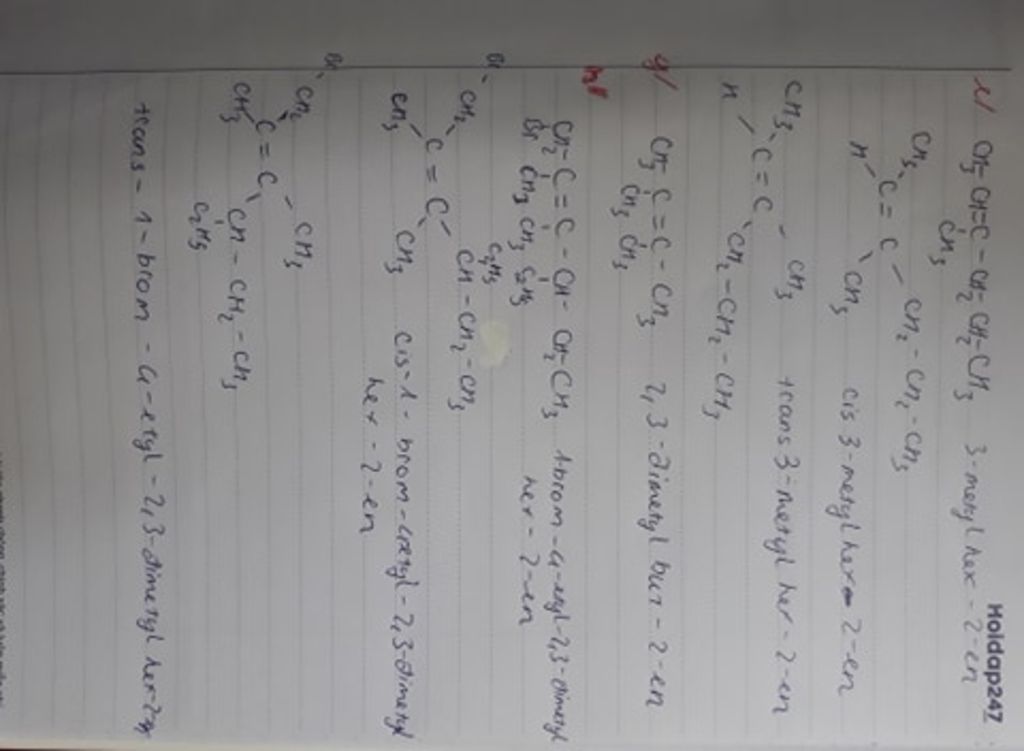 Hoidap247
e/ CH3-CH=C-CH2-CH2-CH3 3-metyl hex-2-en
CH3
CH3 CH2-CH2-CH3
C=C
H CH3 cis 3-metyl hex-2-en
CH3 CH3 trans 3-metyl hex-2-en
C=C
H CH2-CH2-CH3
g/ CH3-C=C-CH3 2,3-dimetyl but-2-en
CH3 CH3
h/
CH2-C=C-CH-CH2-CH3 1-brom-4-etyl-2,3-dimetyl
Br CH3 CH3 C2H5 hex-2-en
C2H5
Br CH2 CH-CH2-CH3
C=C
CH3 CH3 cis-1-brom-4-etyl-2,3-dimetyl
hex-2-en
Br CH2 CH3
C=C
CH3 CH-CH2-CH3
C2H5
trans-1-brom-4-etyl-2,3-dimetyl hex-2-en